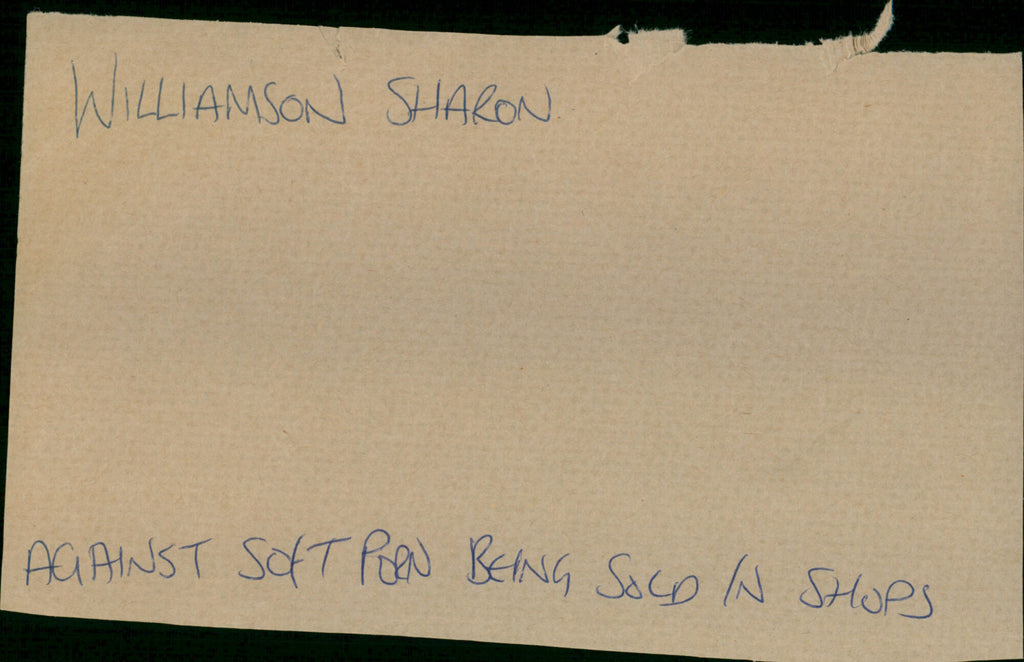 WILLIAMSON SHARON.
AGAINST SOFT PORN BEING SOLD IN SHOPS